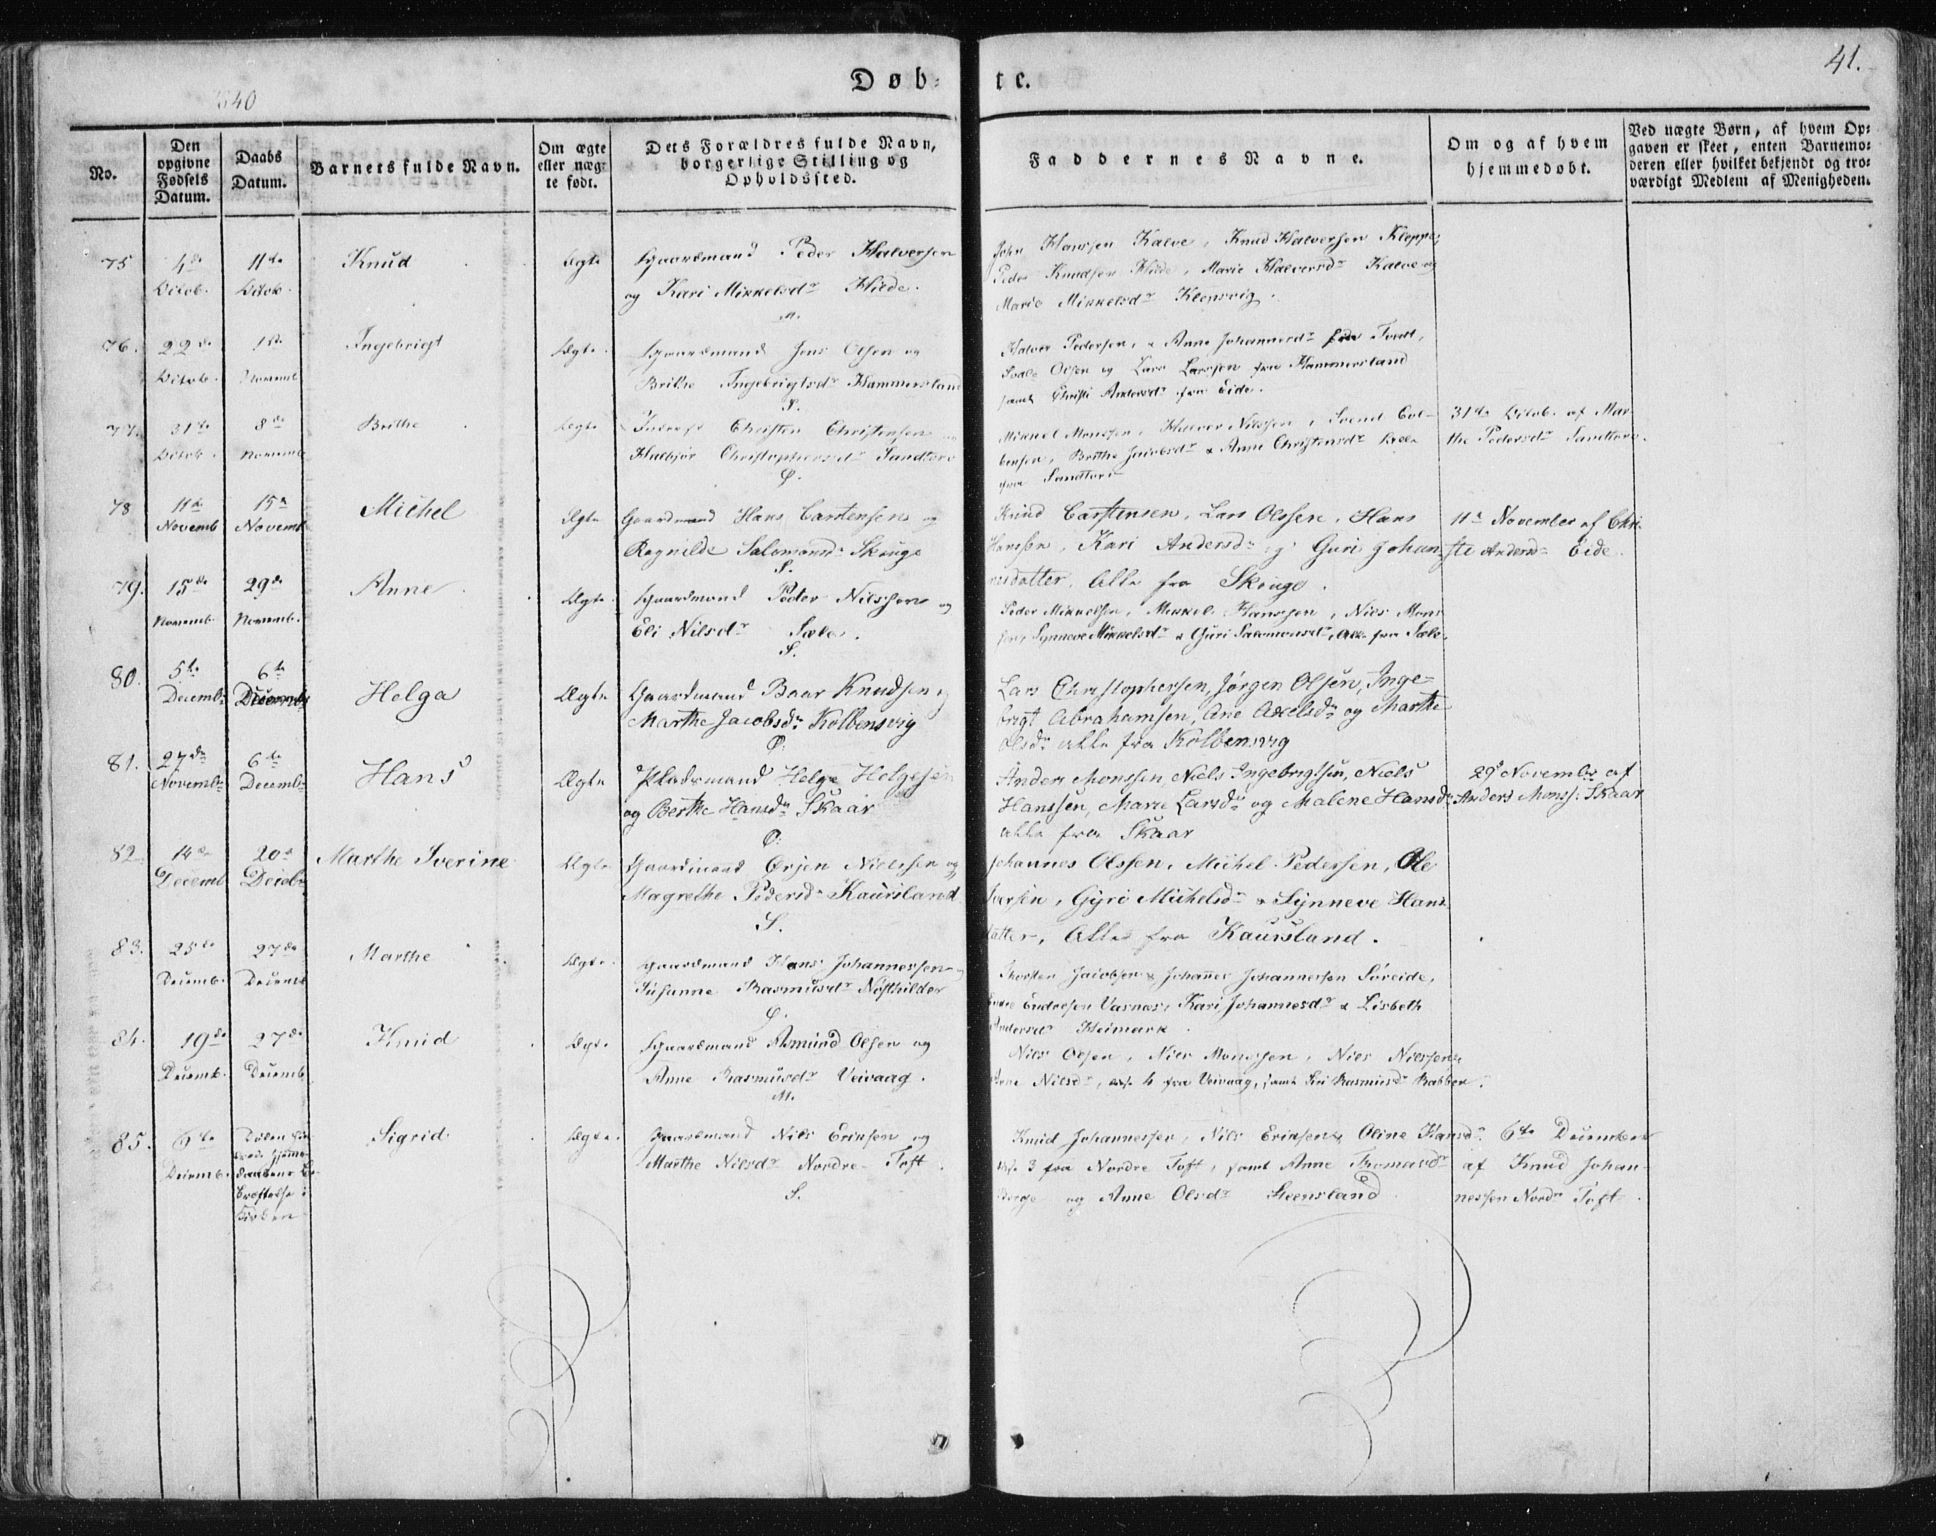 Døb-
te.
41.
No.
Den opgivne Fødsels Datum.
Daabs Datum.
Barnets fulde Navn.
Om ægte eller næg- te født.
Dets Forældres fulde Navn, borgerlige Stilling og Opholdssted.
Faddernes Navne.
Om og af hvem hjemmedøbt.
Ved uægte Børn, af hvem Op-
gaven er skeet, enten Barnemo-
deren eller hvilket bekjendt og tro-
værdigt Medlem af Menigheden.
75
4de
Octob.
11te
Octob.
Knud
Ægte
Gaardmand Peder Halversen
og Kari Mikkelsdr Hilde.
John Hanssen Kalve, Knud Halversen
Peder Knudsen Hilde, Marie Halversdr Kalve og
Marie Mikkelsdr
76.
22de
Octob.
1ste
Novemb
Ingebrigt
Ægte
Gaardmand Jens Olsen og
Brithe Ingebrigtsdr Hammersland
S.
Halver Pedersen, & Anne Johannesdr fra Tvedt,
Olsen og Lars Larssen fra Hammersland
samt Christi fra Eide.
77.
31te
Octob.
8de
Novemb
Brithe
Ægte
Christen Christensen og
Christophersdr
Mikkel Monssen, Halver Nilssen, Svend
Brithe Jacobsdr & Anne Christensdr
fra
31te Octob. af Mar-
the Pedersdr
78
11te
Novemb
15de
Novemb
Michel
Ægte
Gaardmand Hans Carstensen og
Ragnilde Salomonsdr Skouge
S.
Knud Carstensen, Lars Olssen, Hans
Hanssen, Kari Andersdr og Guri Johan-
nesdatter, Alle fra Skouge.
11te November af Chri-
sti Andersdr Eide.
79.
15de
Novemb.
29de
Novemb.
Anne
Ægte
Gaardmand Peder Nilssen og
Eli Nilsdr Sæle.
S.
Peder Mikkelsen, Mikkel Hanssen, Nils Mons-
sen, Synneve Mikkelsdr & Guri Salomonsdr, Alle fra Sæle.
80.
5te
Decembr
6te
Decembr
Helga
Ægte
Gaardmand Baar Knudsen og
Marthe Jacobsdr Kolbensvig
Lars Christophersen, Jørgen Olsen, Inge-
brigt Abrahamsen, Ane Axelsdr og Marthe
Olsdr alle fra Kolbensvig
81.
27de
Novembr
6te
Decembr
Hans
Ægte
Pladsmand Helge Helgesen
og Berthe Hansdr Skaar
Anders Monssen, Niels Ingebrigtsen, Niels
Hanssen, Marie Larsdr og Malene Hansdr
alle fra Skaar
29de Novembr af
Anders Monss: Skaar
82.
14de
Decemb
20de
Decebr
Marthe Iverine
Ægte
Gaardmand Ørjen Nielssen og
Magrethe Pedersdr Kaursland
S.
Johannes Olssen, Michel Pedersen, Ole
Gyri Michelsdr & Synneve Hans-
datter, Alle fra Kaursland.
83.
25de
Decemb.
27de
Decemb
Marthe
Ægte
Gaardmand Hans Johannessen og
Susanne Rasmusdr
Jacobsen & Johannes Johannessen Søreide,
Endresen Kari Johannesdr & Lisbeth
Andersdr Heimark.
84.
19de
Decemb.
27de
Decemb
Knud
Ægte
Gaardmand Asmund Olsen og
Anne Rasmusdr Veivaag.
M.
Nils Olsen, Nils Monssen, Nils Nilssen,
Anne Nilsdr, alle 4 fra Veivaag, samt Siri Rasmusdr
85.
6te
Decemb.
Sigrid
Ægte
Gaardmand Nils Erinsen og
Marthe Nilsdr Nordre Toft.
S.
Knud Johannessen, Nils Erinsen, Oline Hansdr
alle 3 fra Nordre Toft, samt Anne Thomasdr
og Anne Olsdr Steensland
6te December
af Knud Johan-
nessen Nordr Toft